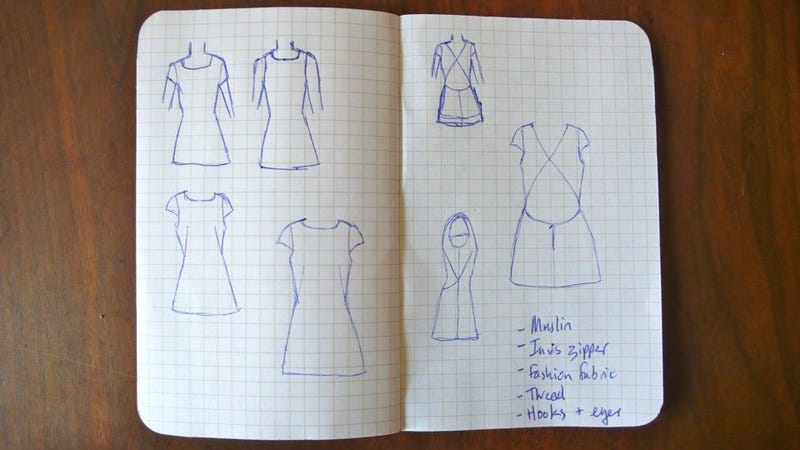 - Muslin
- Invis zipper
- Fashion fabric
- Thread
- Hooks + eyes